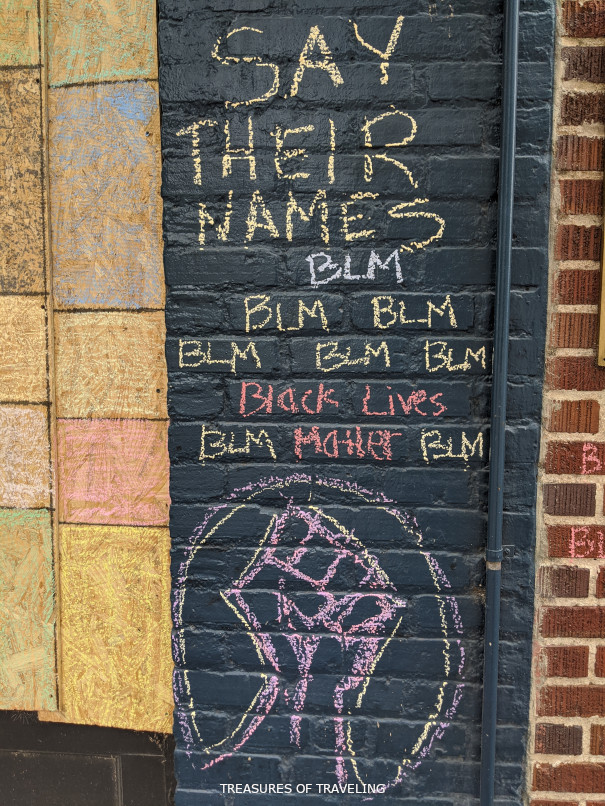 SAY
THEIR
NAMES
BLM
BLM BLM
BLM BLM BLM
Black Lives
BLM Matter BLM
TREASURES OF TRAVELING